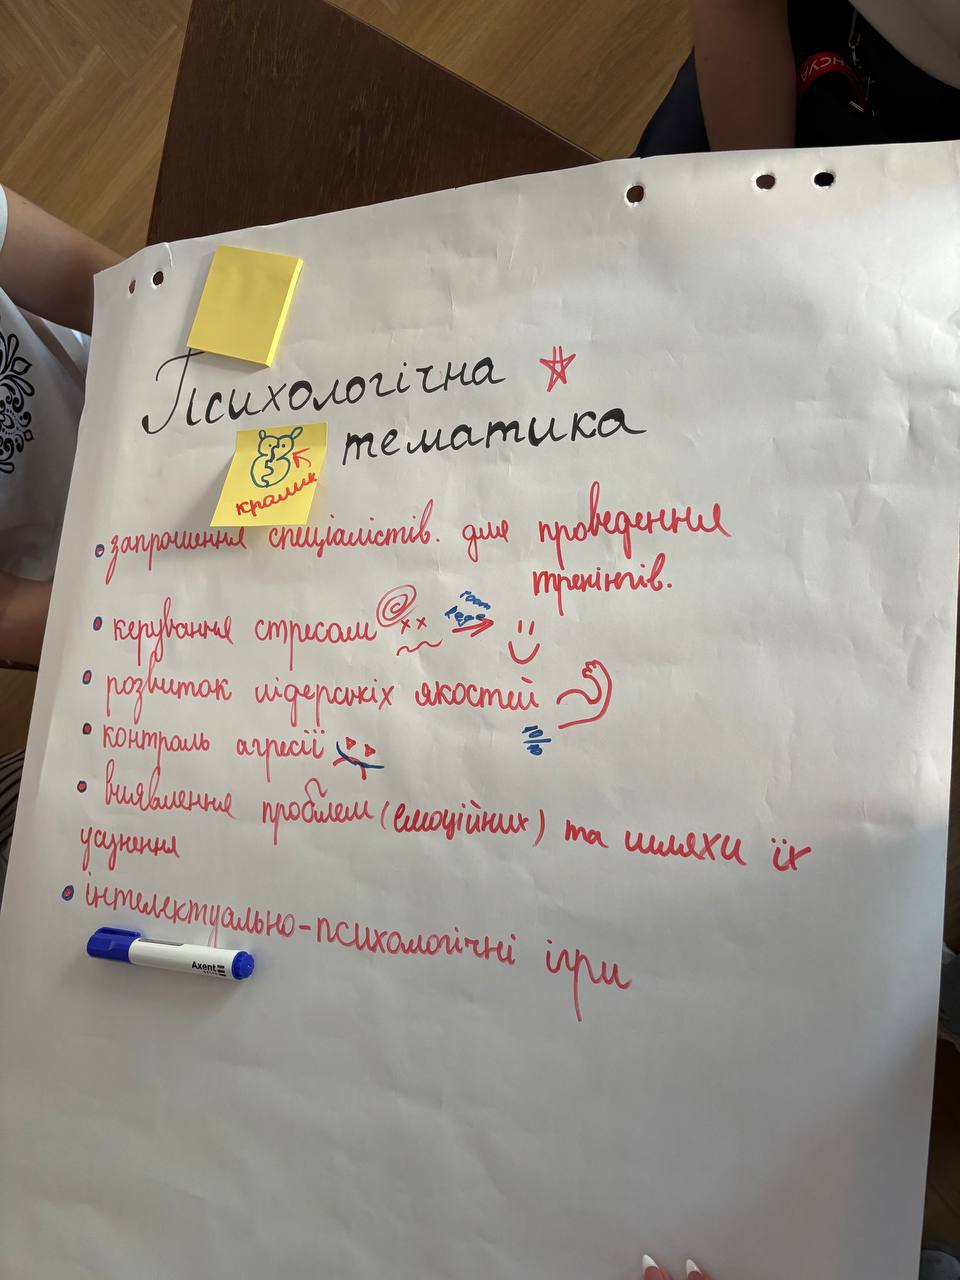 Психологічна
тематика
кролик
запрошення спеціалістів. для проведення
тренінгів.
керування стресом
розвиток лідерських якостей
10/10
контроль агресії
виявлення проблем (емоційних) та шляхи їх
усунення
інтелектуально-психологічні ігри
Axent